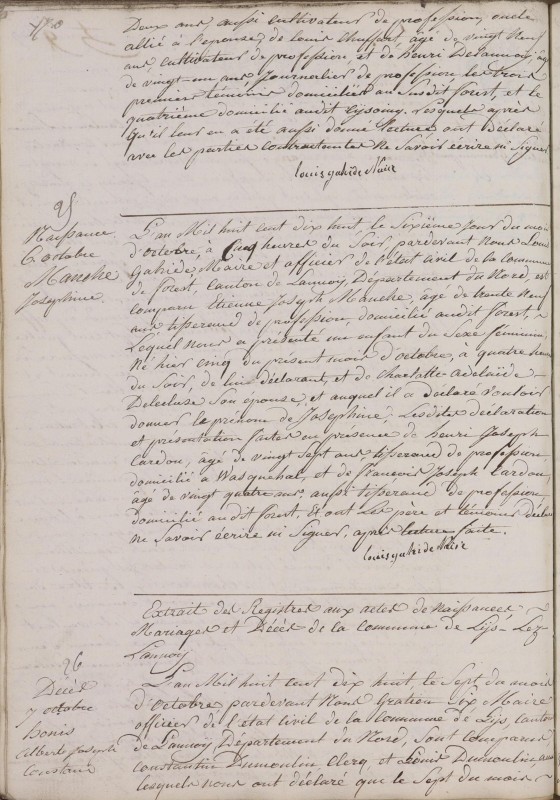 Deux ans aussi cultivateur de profession, oncle
allié à l'epouse, de Louis Chuffart, âgé de vingt neuf
ans, cultivateur de profession, et de henri Delannoy, âgé
de vingt-un ans Journalier de profession les trois
premiers témoins domiciliés au Susdit forest, et le
quatrième domicilié audit Lysoing, Lesquels après
Qu'il leur en a été aussi donné lecture ont déclaré
avec les parties contractantes ne Savoir écrire ni Signer
Louis gahide Maire
25
Naissance
6 octobre
Manche
Josephine
L'an Mil huit cent dix huit, le Sixième Jour du mois
d'octobre, à Cinq heures du Soir, pardevant nous Louis
Gahide, Maire et officier de l'état civil de la Commune
de forest, Canton de Lannoy, Département du Nord, est
comparu Etienne Joseph Manche, âgé de trente neuf
ans, tisserand de profession, domicilié audit forest,
Lequel nous a présenté un enfant du Sexe féminin,
Né hier cinq du présent mois d'octobre, à quatre heures
du Soir, de lui déclarant, et de Charlotte Adelaïde
Delecluse Son épouse, et auquel il a déclaré vouloir
donner le prénom de Josephine. Lesdites déclaration
et présentation faites en presence de henri Joseph
Cardon, âgé de vingt Sept ans, tisserand de profession,
domicilié à Wasquehal, et de francois Joseph Cardon,
âgé de vingt quatre ans, aussi tisserand de profession,
domicilié audit forest, Et ont Les père et témoins déclaré
ne Savoir écrire ni Signer, après lecture faite.
Louis gahide Maire
Extrait des Registres aux actes de Naissances
Mariages et Décès de la Commune de Lys-Lez
Lannoy
26
Décès
7 octobre
Bonis
Albert Joseph
Constant
L'an Mil huit cent dix huit, le Sept du mois
d'Octobre, pardevant Nous Gratien Lix Maire
officier de l'état civil de la Commune de Lys, Canton
de Lannoy, Département du Nord, Sont comparus
Constantin Dumoulin Clerq, et Louis Dumoulin,
lesquels nous ont déclaré que le Sept du mois